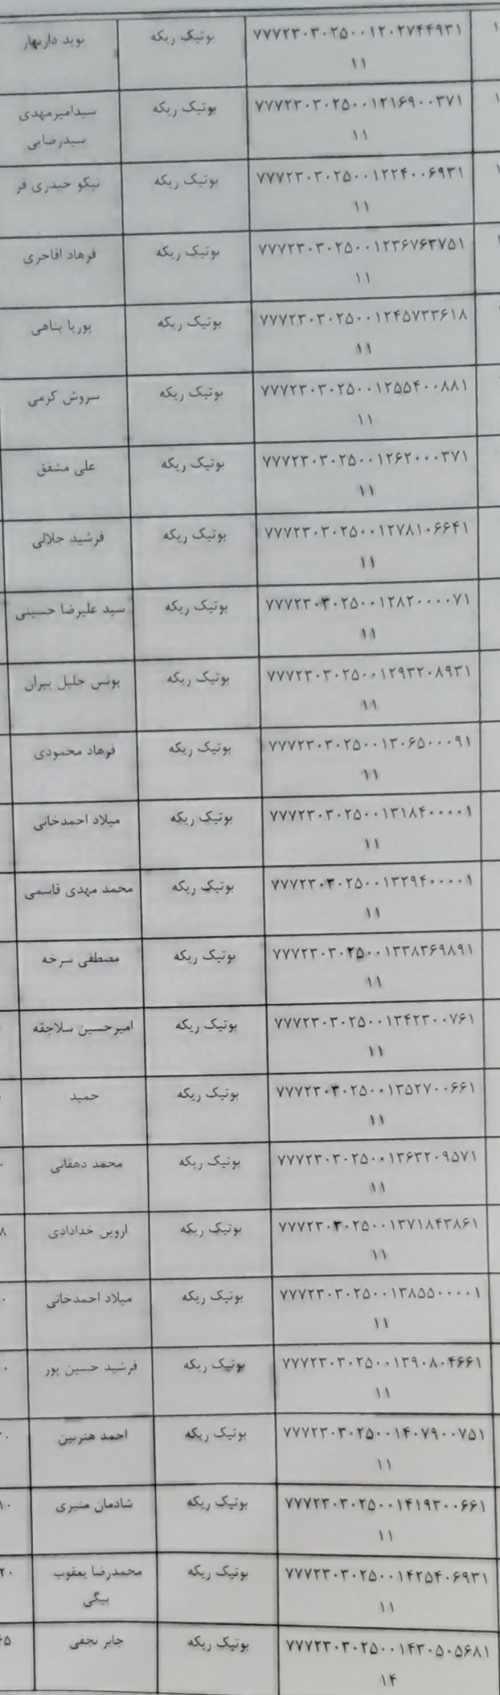 نوید داربهار بوتیک ریکه ۷۷۷۲۳۰۳۰۲۵۰۰۱۲۰۲۷۴۴۹۳۱
۱۱
سیدامیرمهدی بوتیک ریکه ۷۷۷۲۳۰۳۰۲۵۰۰۱۲۱۶۹۰۰۳۷۱
سیدرضایی ۱۱
نیکو حیدری فر بوتیک ریکه ۷۷۷۲۳۰۳۰۲۵۰۰۱۲۲۴۰۰۶۹۳۱
۱۱
فرهاد اقاجری بوتیک ریکه ۷۷۷۲۳۰۳۰۲۵۰۰۱۲۳۶۷۶۳۷۵۱
۱۱
پوریا پناهی بوتیک ریکه ۷۷۷۲۳۰۳۰۲۵۰۰۱۲۴۵۷۳۳۶۱۸
۱۱
سروش کرمی بوتیک ریکه ۷۷۷۲۳۰۳۰۲۵۰۰۱۲۵۵۴۰۰۸۸۱
۱۱
علی مشفق بوتیک ریکه ۷۷۷۲۳۰۳۰۲۵۰۰۱۲۶۲۰۰۰۳۷۱
۱۱
فرشید جلالی بوتیک ریکه ۷۷۷۲۳۰۳۰۲۵۰۰۱۲۷۸۱۰۶۶۴۱
۱۱
سید علیرضا حسینی بوتیک ریکه ۷۷۷۲۳۰۳۰۲۵۰۰۱۲۸۲۰۰۰۰۷۱
۱۱
یونس جلیل پیران بوتیک ریکه ۷۷۷۲۳۰۳۰۲۵۰۰۱۲۹۳۲۰۸۹۳۱
۱۱
فرهاد محمودی بوتیک ریکه ۷۷۷۲۳۰۳۰۲۵۰۰۱۳۰۶۵۰۰۰۹۱
۱۱
میلاد احمدخانی بوتیک ریکه ۷۷۷۲۳۰۳۰۲۵۰۰۱۳۱۸۴۰۰۰۰۱
۱۱
محمد مهدی قاسمی بوتیک ریکه ۷۷۷۲۳۰۳۰۲۵۰۰۱۳۲۹۴۰۰۰۰۱
۱۱
مصطفی سرخه بوتیک ریکه ۷۷۷۲۳۰۳۰۲۵۰۰۱۳۳۸۳۶۹۸۹۱
۱۱
امیرحسین سلاجقه بوتیک ریکه ۷۷۷۲۳۰۳۰۲۵۰۰۱۳۴۲۳۰۰۷۶۱
۱۱
حمید بوتیک ریکه ۷۷۷۲۳۰۳۰۲۵۰۰۱۳۵۲۷۰۰۶۶۱
۱۱
محمد دهقانی بوتیک ریکه ۷۷۷۲۳۰۳۰۲۵۰۰۱۳۶۳۲۰۹۵۷۱
۱۱
اروین خدادادی بوتیک ریکه ۷۷۷۲۳۰۳۰۲۵۰۰۱۳۷۱۸۴۳۸۶۱
۱۱
میلاد احمدخانی بوتیک ریکه ۷۷۷۲۳۰۳۰۲۵۰۰۱۳۸۵۵۰۰۰۰۱
۱۱
فرشید حسین پور بوتیک ریکه ۷۷۷۲۳۰۳۰۲۵۰۰۱۳۹۰۸۰۴۶۶۱
۱۱
احمد هنربین بوتیک ریکه ۷۷۷۲۳۰۳۰۲۵۰۰۱۴۰۷۹۰۰۷۵۱
۱۱
شادمان منبری بوتیک ریکه ۷۷۷۲۳۰۳۰۲۵۰۰۱۴۱۹۳۰۰۶۶۱
۱۱
محمدرضا یعقوب بوتیک ریکه ۷۷۷۲۳۰۳۰۲۵۰۰۱۴۲۵۴۰۶۹۳۱
بیگی ۱۱
جابر نجفی بوتیک ریکه ۷۷۷۲۳۰۳۰۲۵۰۰۱۴۳۰۵۰۵۶۸۱
۱۴